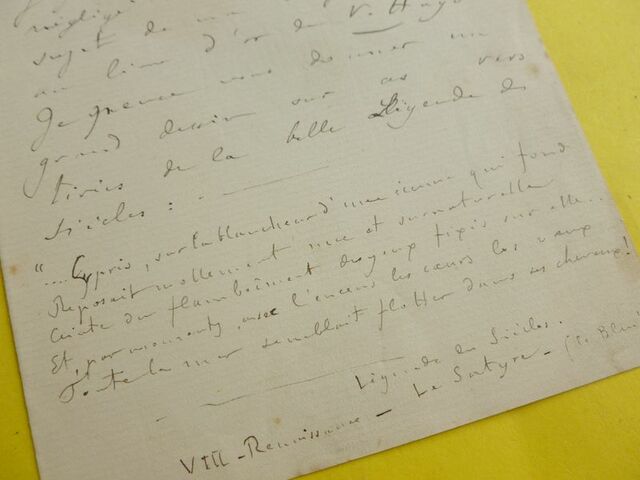 néglige
sujet de ma
au livre d'or de V. Hugo
Je pense vous donner un
grand dessin sur ces vers
tirés de la belle Légende des
Siècles :
".... Cypris, sur la blancheur d'une écume qui fond
Reposait mollement nue et surnaturelle
Ceinte du flamboîment des yeux fixés sur elle...
Et, par moments, avec l'encens, les cœurs, les vœux
Toute la mer semblait flotter dans ses cheveux!
Légende des Siècles.
VIII - Renaissance - Le Satyre - (Le Bleu